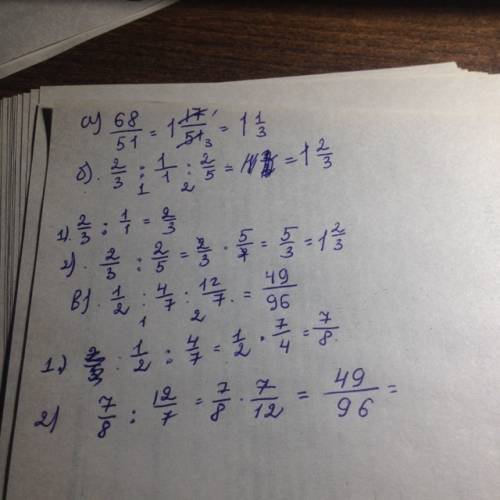 а) 68/51 = 1 17/51 = 1 1/3
б). 2/3 : 1/1 : 2/5 = = 1 2/3
1). 2/3 : 1/1 = 2/3
2). 2/3 : 2/5 = 2/3 · 5/2 = 5/3 = 1 2/3
в). 1/2 : 4/7 : 12/7 = 49/96
1.) 1/2 : 4/7 = 1/2 · 7/4 = 7/8
2) 7/8 : 12/7 = 7/8 · 7/12 = 49/96 =